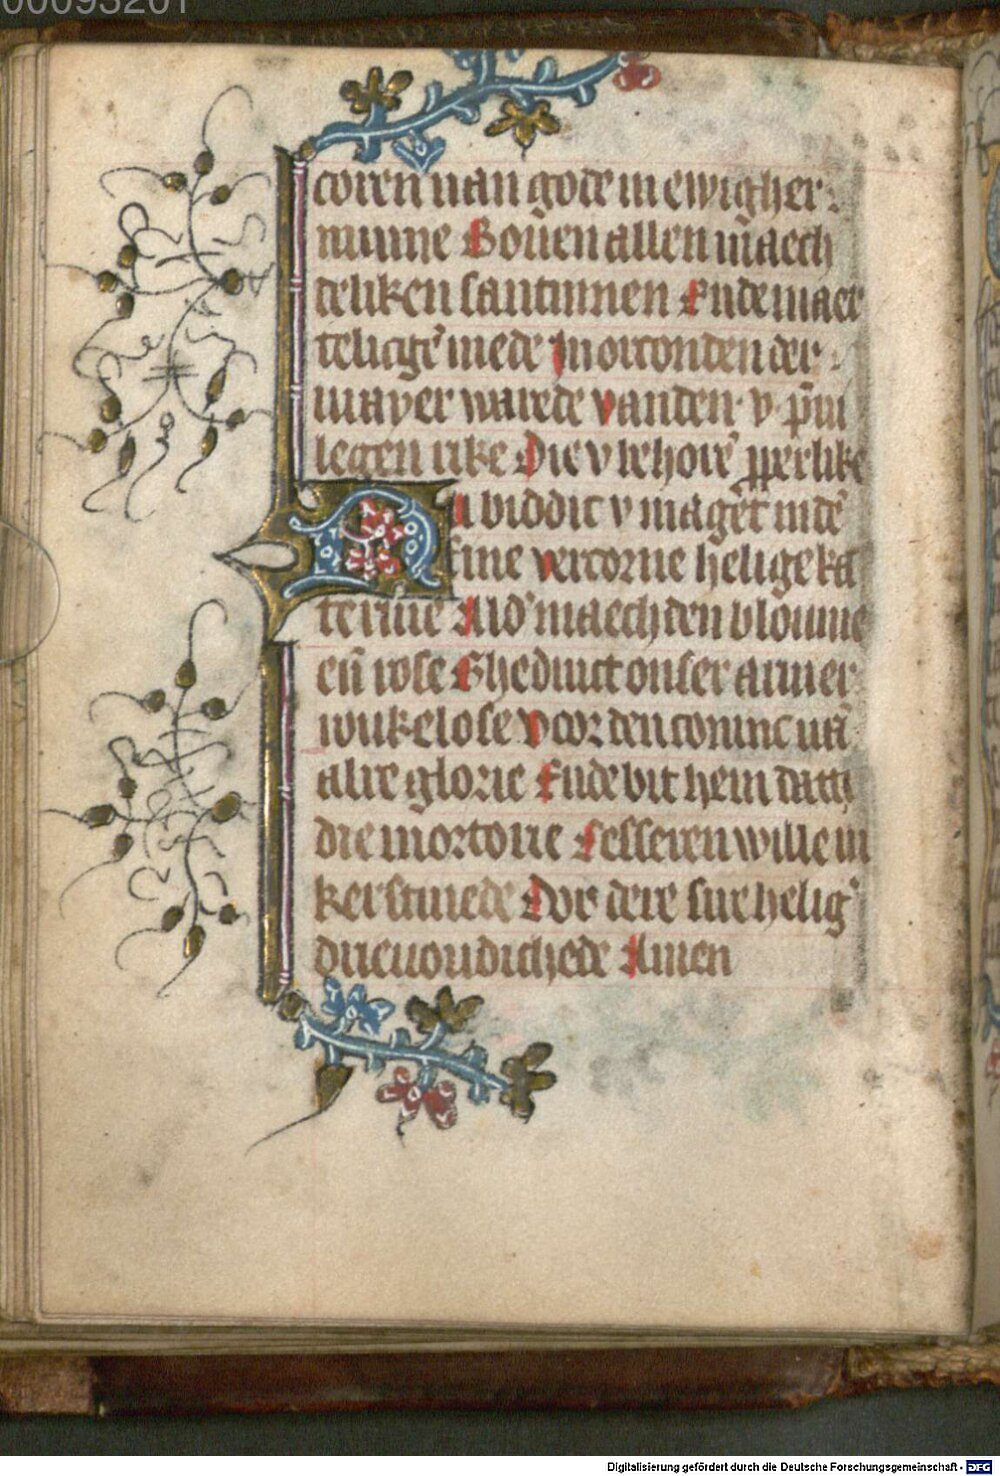 00093201
coren uan gode in ewigher
minne Bouen allen maech
deliken santinnen Ende maer
teliclẽ mede In orconden der
waper warede vanden v pũi
legen rike Die v behorẽ pperlike
Nu biddic v magẽt inde
fine vercorne helige ka
terine Alđ maechden bloume
eñ rose Ghedinct onser armer
wukelose Voor den coninc uã
alre glorie Ende bit hem dat
die mortorie lesseren wille in
kerstinede Dor dere sure helig
drieuoudichede Amen
Digitalisierung gefördert durch die Deutsche Forschungsgemeinschaft - DFG